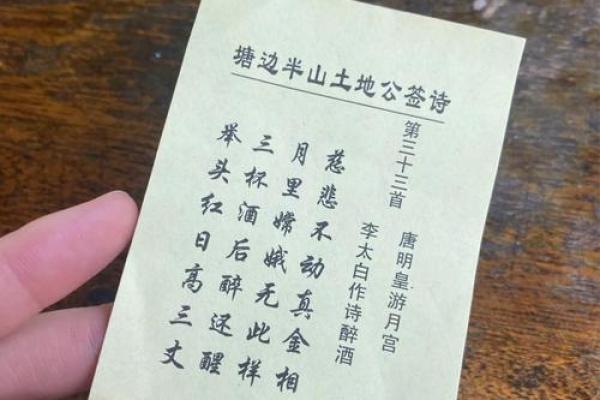 塘边半山土地公签诗
第三十三首
唐明皇游月宫
李太白作诗醉酒
慈悲不动真金相
月里嫦娥无此样
三杯酒后醉还醒
举头红日高三丈